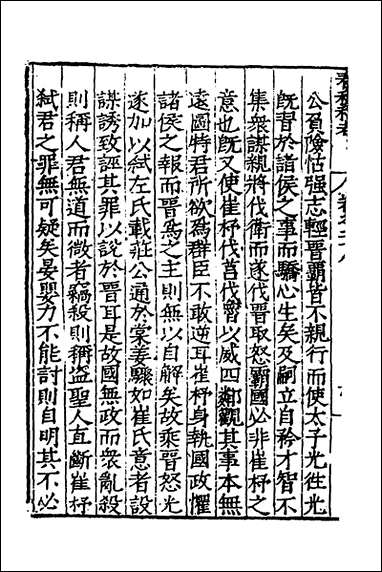 公負險怙强志輕晉霸皆不親行而使太子光往光
旣習於諸侯之事而驕心生矣及嗣立自矜才智不
集衆謀親將伐衛而遂伐晉取怒霸國必非崔杼之
意也旣又使崔杼伐莒伐魯以威四鄰觀其事本無
遠圖特君所欲爲群臣不敢逆耳崔杼身執國政懼
諸侯之報而晉爲之主則無以自解矣故乘晉怒光
遂加以弑左氏載莊公通於棠姜驟如崔氏意者設
謀誘致誣其罪以說於晉耳是故國無政而衆亂殺
則稱人君無道而微者竊殺則稱盗聖人直斷崔杼
弑君之罪無可疑矣晏嬰力不能討則自明其不必